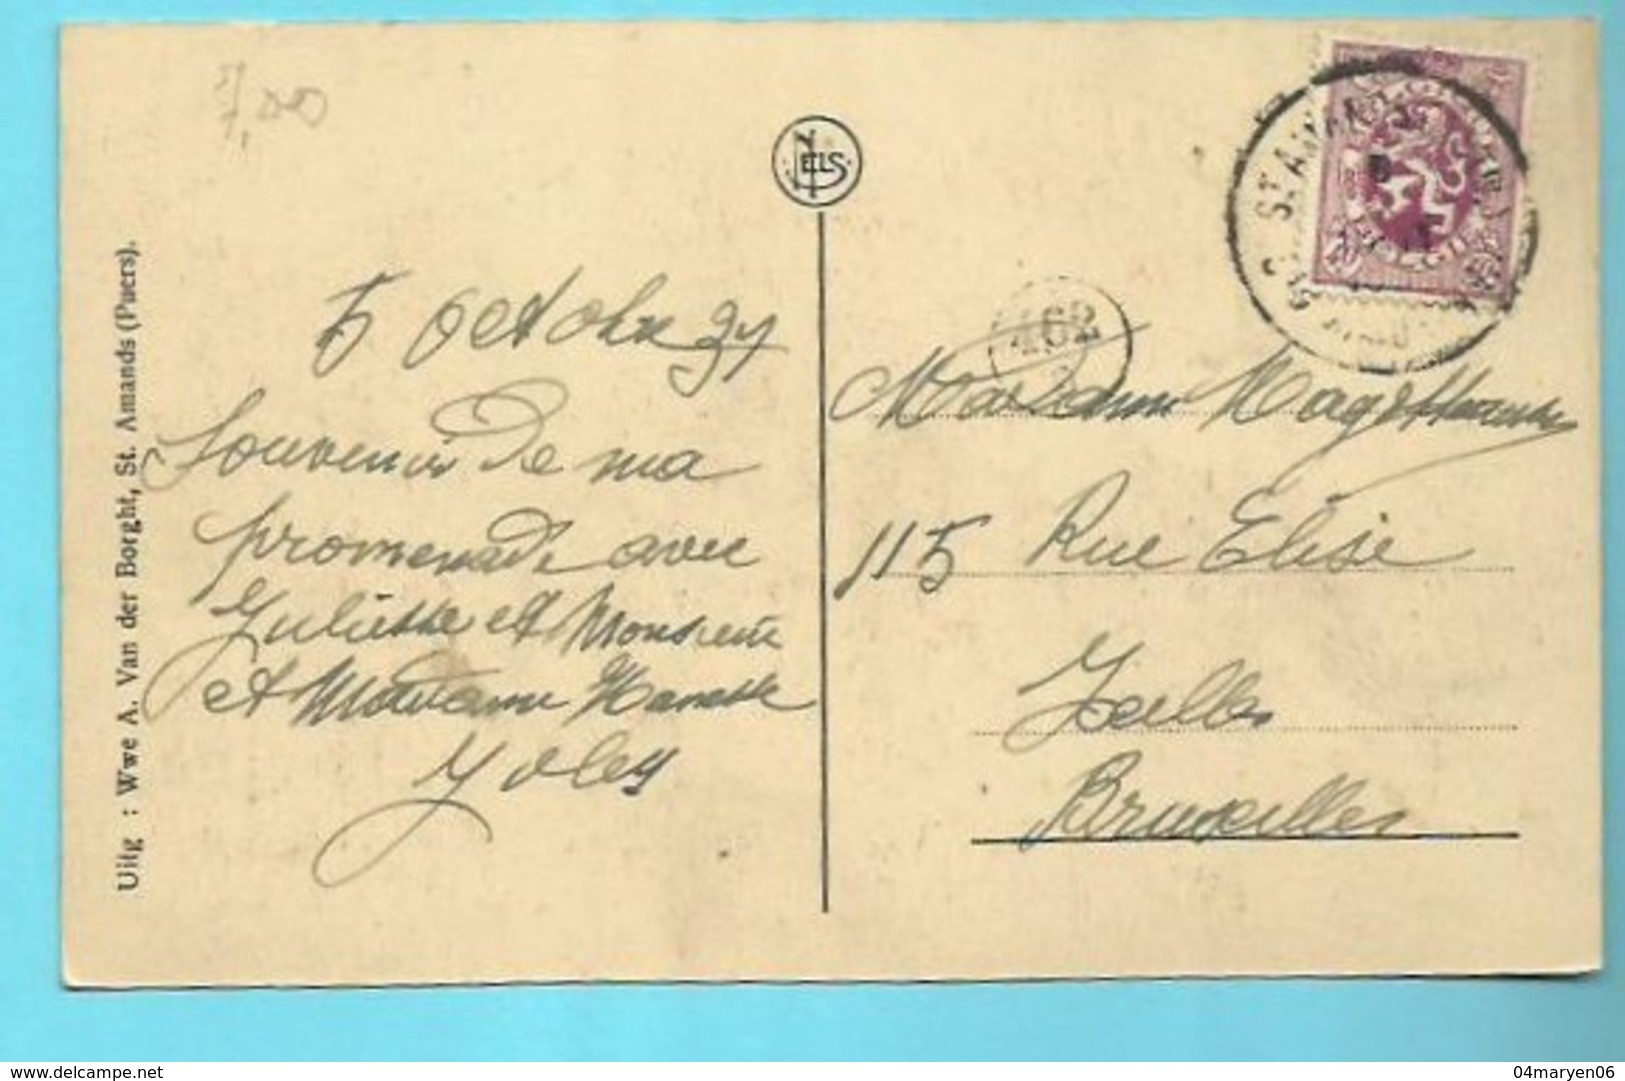 7,00
NELS
Uitg : Wwe A. Van der Borght, St. Amands (Puers).
5 Octobre
Souvenir de ma
promenade avec
Juliette et Monsieur
et Madame
ST. AMANDS
462
Madame
115 Rue Elise
Ixelles
Bruxelles
www.delcampe.net
04maryen06